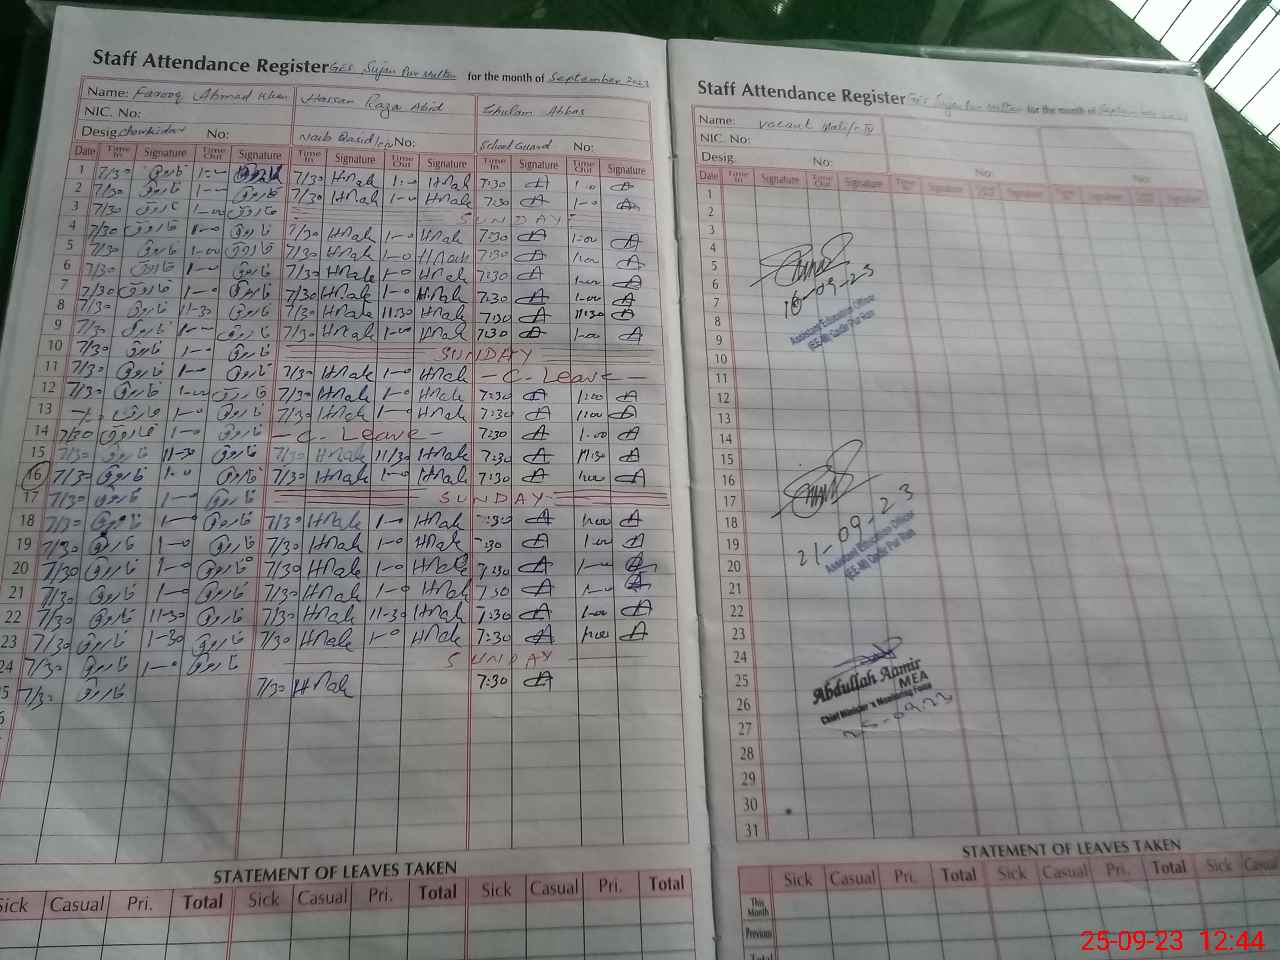 Staff Attendance Register GES Sujan Pur Multan for the month of September 2023
Name: Farooq Ahmad Khan Hassan Raza Abid Ghulam Abbas
NIC. No:
Desig. Chowkidar No: Naib Qasid No: School Guard No:
Date Time In Signature Time Out Signature Time In Signature Time Out Signature Time In Signature Time Out Signature
1 7/30 فاروق 1-00 7/30 HMak 1-00 HMak 7:30 A 1-00 A
2 7/30 فاروق 1-00 فاروق 7/30 HMak 1-0 HMak 7:30 A 1-0 A
3 7/30 فاروق 1-00 فاروق SUNDAY
4 7/30 فاروق 1-0 فاروق 7/30 HMak 1-0 HMak 7:30 A 1:00 A
5 7/30 فاروق 1-00 فاروق 7/30 HMak 1-0 HMak 7:30 A 1:00 A
6 7/30 فاروق 1-0 فاروق 7/30 HMak 1-0 HMak 7:30 A 1:00 A
7 7/30 فاروق 1-0 فاروق 7/30 HMak 1-0 HMak 7:30 A 1-00 A
8 7/30 فاروق 11-30 فاروق 7/30 HMak 11:30 HMak 7:30 A 11:30 A
9 7/30 فاروق 1-0 فاروق 7/30 HMak 1-00 HMak 7:30 A 1-00 A
10 7/30 فاروق 1-0 فاروق SUNDAY
11 7/30 فاروق 1-0 فاروق 7/30 HMak 1-0 HMak - C. Leave -
12 7/30 فاروق 1-00 فاروق 7/30 HMak 1-0 HMak 7:30 A 1:00 A
13 فاروق 1-0 فاروق 7/30 HMak 1-0 HMak 7:30 A 1:00 A
14 7/30 فاروق 1-0 فاروق - C. Leave - 7:30 A 1-00 A
15 7/30 فاروق 11-30 فاروق 7/30 HMak 11/30 HMak 7:30 A 11:30 A
16 7/30 فاروق 1-0 فاروق 7/30 HMak 1-0 HMak 7:30 A 1:00 A
17 7/30 فاروق 1-0 فاروق SUNDAY
18 7/30 فاروق 1-0 فاروق 7/30 HMak 1-0 HMak 7:30 A 1:00 A
19 7/30 فاروق 1-0 فاروق 7/30 HMak 1-0 HMak 7:30 A 1-00 A
20 7/30 فاروق 1-0 فاروق 7/30 HMak 1-0 HMak 7:30 A 1-00
21 7/30 فاروق 1-0 فاروق 7/30 HMak 1-0 HMak 7:30 A 1-00 A
22 7/30 فاروق 11-30 فاروق 7/30 HMak 11-30 HMak 7:30 A 1-00 A
23 7/30 فاروق 1-30 فاروق 7/30 HMak 1-0 HMak 7:30 A 1:00 A
24 7/30 فاروق 1-0 فاروق SUNDAY
25 7/30 فاروق 7/30 HMak 7:30 A
STATEMENT OF LEAVES TAKEN
Sick Casual Pri. Total Sick Casual Pri. Total Sick Casual Pri. Total
Staff Attendance Register GES Sujan Pur Multan for the month of September 2023
Name: Vacant
NIC. No:
Desig. No: No: No:
Date Time In Signature Time Out Signature Time In Signature Time Out Signature Time In Signature Time Out Signature
1
2
3
4
5
6
7
8
9
10
11
12
13
14
15
16
17
18
19
20
21
22
23
24
25
26
27
28
29
30
31
18-09-23
Assistant Education Officer
21-09-23
Assistant Education Officer
Abdullah Aamir
MEA
Chief Minister's Monitoring Force
25-09-23
STATEMENT OF LEAVES TAKEN
Sick Casual Pri. Total Sick Casual Pri. Total Sick Casual
This Month
Previous
Total
25-09-23 12:44